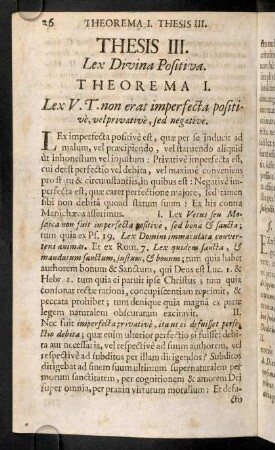 26 THEOREMA I. THESIS III.
THESIS III.
Lex Divina Positiva.
THEOREMA I.
Lex V. T. non erat imperfecta positi-
vè, vel privativè, sed negativè.
LEx imperfecta positivè est, quæ per se inducit ad
malum, vel præcipiendo, vel statuendo aliquid
ut inhonestum vel injustum: Privativè imperfecta est,
cui deest perfectio vel debita, vel maximè conveniens
pro statu & circumstantiis, in quibus est: Negativè im-
perfecta est, quæ caret perfectione majore, sed tamen
sibi non debitâ quoad statum suum: Ex his contra
Manichæos asserimus. I. Lex Vetus seu Mo-
saica non fuit imperfecta positivè, sed bona & sancta;
tum quia ex Ps. 19. Lex Domini immaculata conver-
tens animas. Et ex Rom. 7. Lex quidem sancta, &
mandatum sanctum, justum, & bonum; tum quia habet
authorem bonum & Sanctum, qui Deus est Luc. 1. &
Hebr. 1. tum quia ei paruit ipse Christus; tum quia
consonat rectæ rationi, concupiscentiam reprimit, &
peccata prohibet; tum denique quia magna ex parte
legem naturalem obscuratam excitavit. II.
Nec fuit imperfecta privativè, ita ut ei defuisset perfe-
ctio debita; quæ enim ulterior perfectio si fuisset debi-
ta aut necessaria, vel respectivè ad suum authorem, vel
respectivè ad subditos per illam dirigendos? Subditos
dirigebat ad finem suum ultimum supernaturalem per
morum sanctitatem, per cognitionem & amorem Dei
super omnia, per praxin virtutum moralium: Et defa-
cto